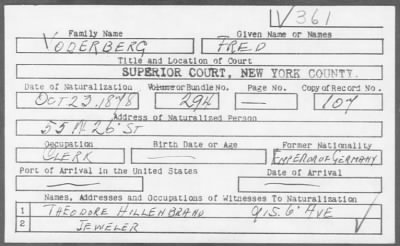 V361
Family Name Given Name or Names
VODERBERG FRED
Title and Location of Court
SUPERIOR COURT, NEW YORK COUNTY.
Date of Naturalization Volume or Bundle No. Page No. Copy of Record No.
OCT 23, 1878 294 — 107
Address of Naturalized Person
55 W. 26" ST
Occupation Birth Date or Age Former Nationality
CLERK — EMPEROR OF GERMANY
Port of Arrival in the United States Date of Arrival
— —
Names, Addresses and Occupations of Witnesses To Naturalization
1 THEODORE HILLENBRAND 915. 6" AVE
2 JEWELER